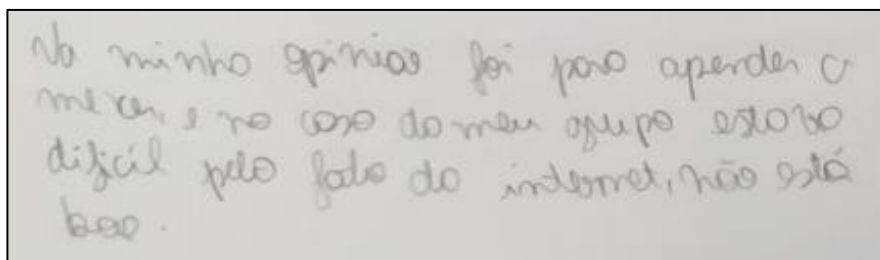 Na minha opinião foi para aprender a
mexer, e no caso do meu grupo estava
dificil pelo fato da internet, não está
boa.